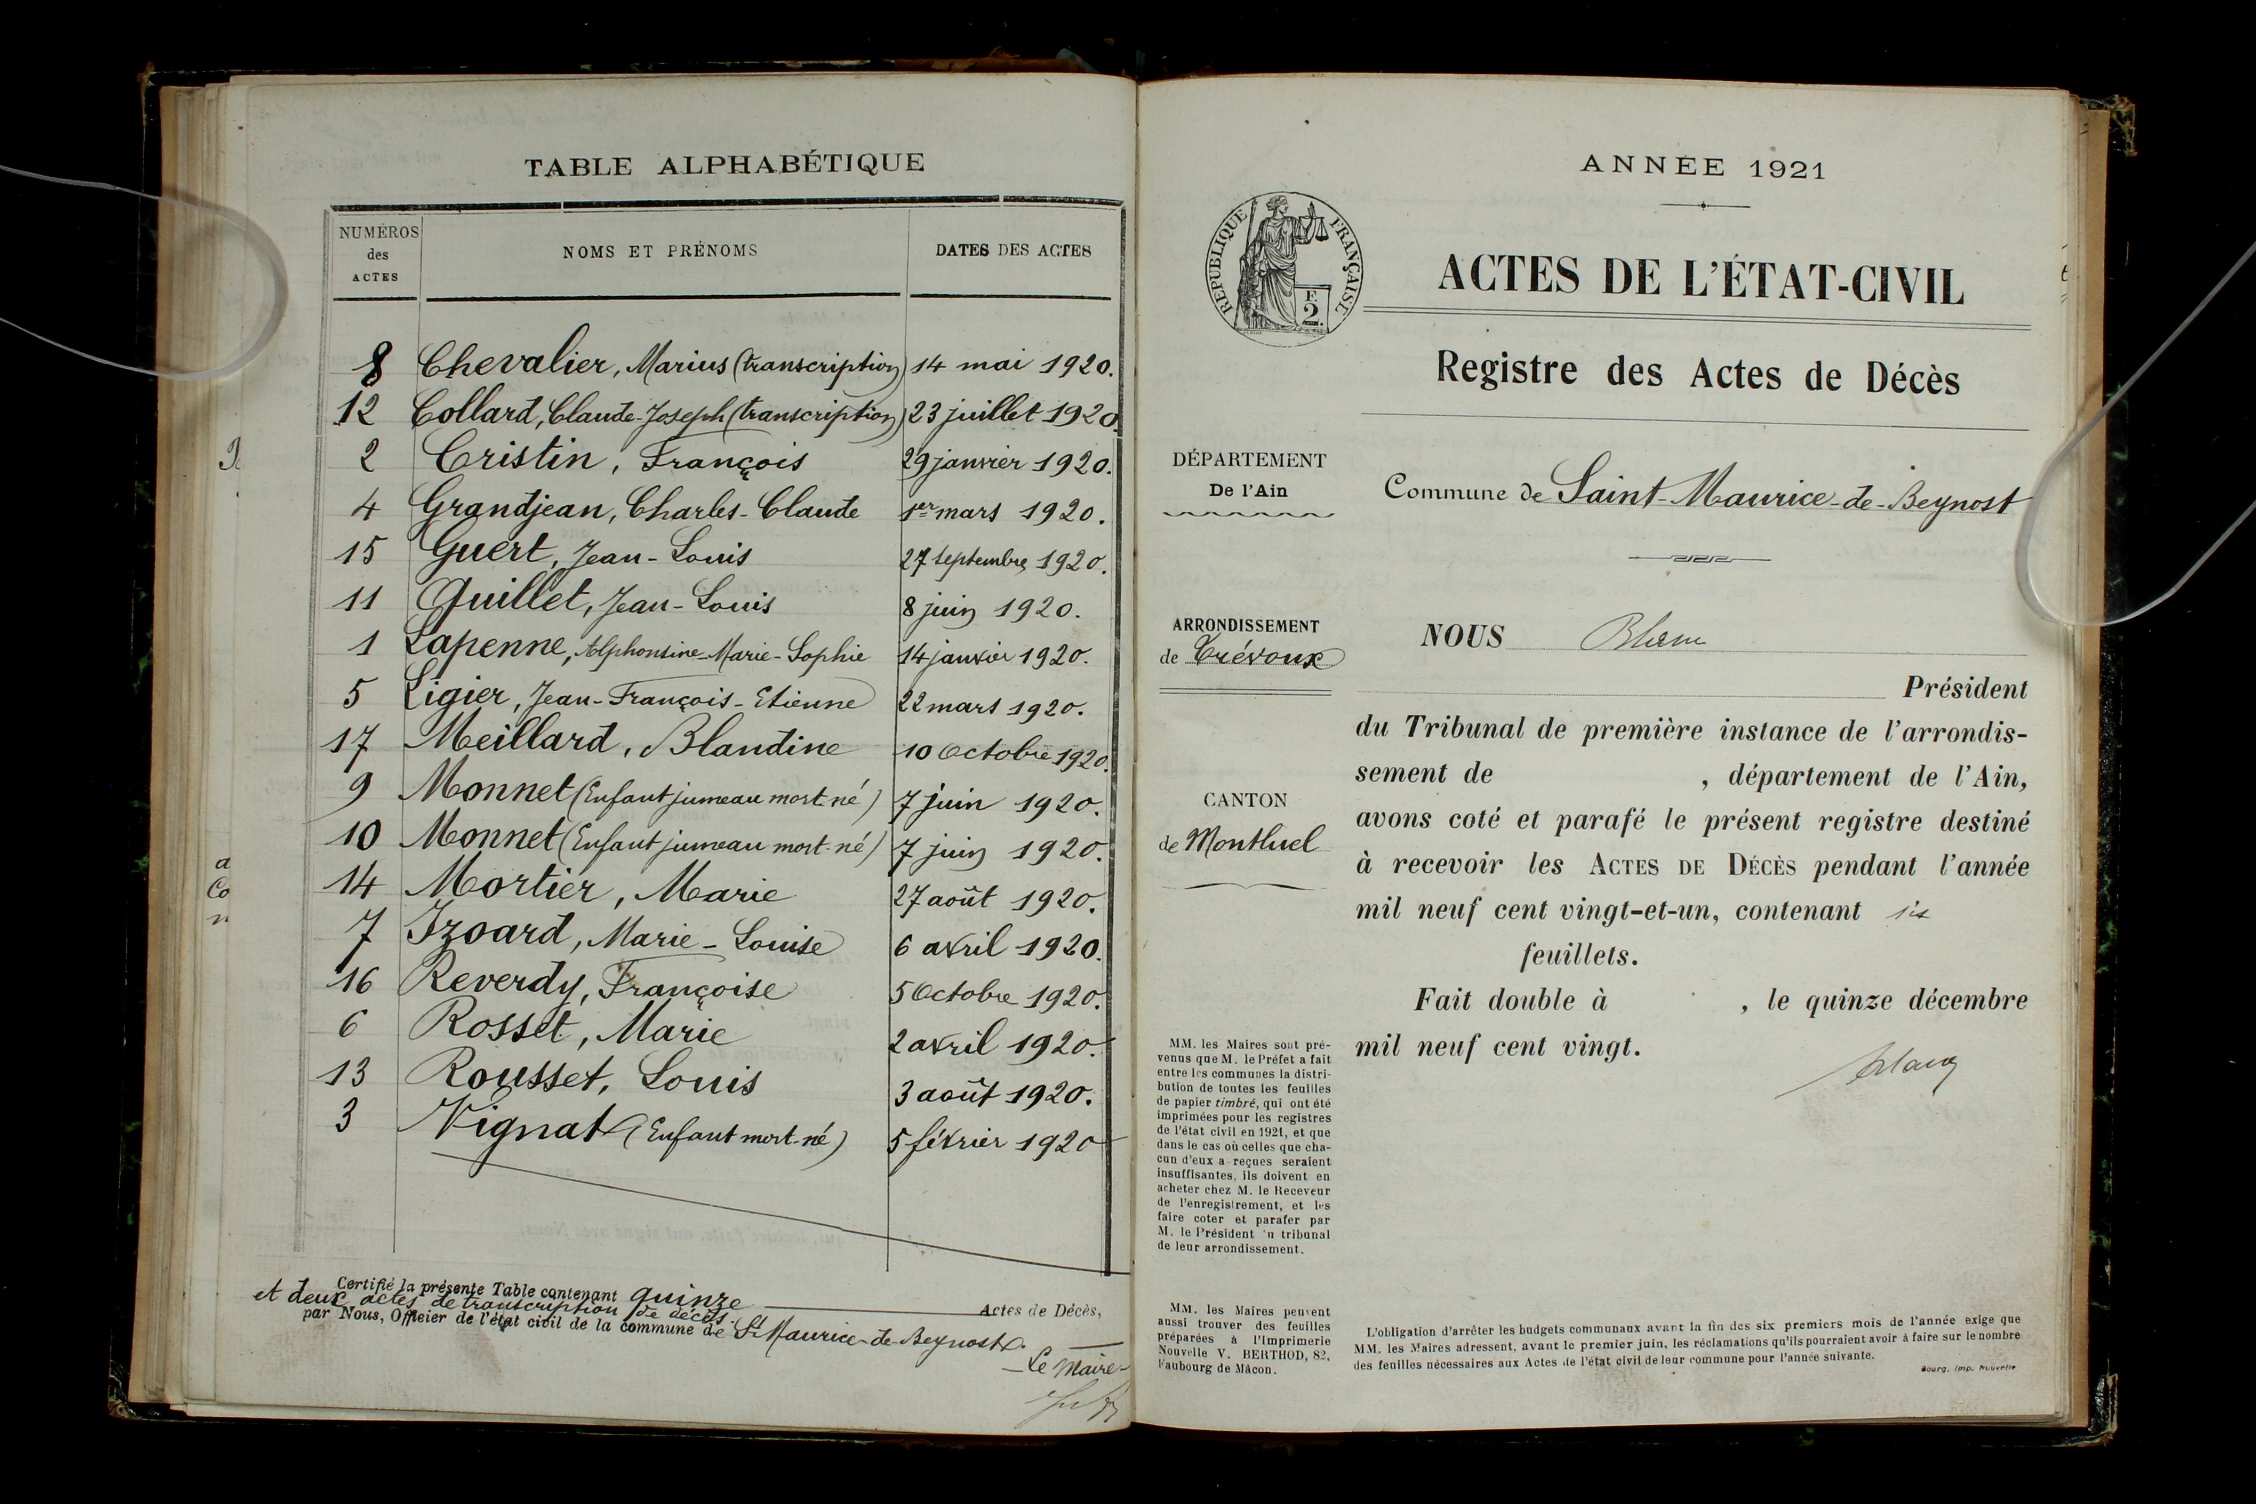 TABLE ALPHABÉTIQUE
NUMÉROS des ACTES
NOMS ET PRÉNOMS
DATES DES ACTES
8 Chevalier, Marius (transcription) 14 mai 1920.
12 Collard, Claude-Joseph (transcription) 23 juillet 1920.
2 Cristin, François 29 janvier 1920.
4 Grandjean, Charles-Claude 1er mars 1920.
15 Guert, Jean-Louis 27 septembre 1920.
11 Guillet, Jean-Louis 8 juin 1920.
1 Lapenne, Alphonsine-Marie-Sophie 14 janvier 1920.
5 Ligier, Jean-François-Etienne 22 mars 1920.
17 Meillard, Blandine 10 Octobre 1920.
9 Monnet (Enfant jumeau mort-né) 7 juin 1920.
10 Monnet (Enfant jumeau mort-né) 7 juin 1920.
14 Mortier, Marie 27 août 1920.
7 Izoard, Marie-Louise 6 avril 1920.
16 Reverdy, Françoise 5 Octobre 1920.
6 Rosset, Marie 2 avril 1920.
13 Rousset, Louis 3 août 1920.
3 Vignat (Enfant mort-né) 5 février 1920
Certifié la présente Table contenant quinze
et deux actes de transcription de décès. Actes de Décès,
par Nous, Officier de l'état civil de la commune de St Maurice-de-Beynost.
Le Maire
ANNÉE 1921
RÉPUBLIQUE FRANÇAISE
E
2
ACTES DE L'ÉTAT-CIVIL
Registre des Actes de Décès
DÉPARTEMENT
De l'Ain
Commune de Saint-Maurice-de-Beynost
ARRONDISSEMENT
de Trévoux
CANTON
de Montluel
NOUS
Président
du Tribunal de première instance de l'arrondis-
sement de , département de l'Ain,
avons coté et parafé le présent registre destiné
à recevoir les ACTES DE DÉCÈS pendant l'année
mil neuf cent vingt-et-un, contenant six
feuillets.
Fait double à , le quinze décembre
mil neuf cent vingt.
MM. les Maires sont pré-
venus que M. le Préfet a fait
entre les communes la distri-
bution de toutes les feuilles
de papier timbré, qui ont été
imprimées pour les registres
de l'état civil en 1921, et que
dans le cas où celles que cha-
cun d'eux a reçues seraient
insuffisantes, ils doivent en
acheter chez M. le Receveur
de l'enregistrement, et les
faire coter et parafer par
M. le Président du tribunal
de leur arrondissement.
MM. les Maires peuvent
aussi trouver des feuilles
préparées à l'Imprimerie
Nouvelle V. BERTHOD, 82,
Faubourg de Mâcon.
L'obligation d'arrêter les budgets communaux avant la fin des six premiers mois de l'année exige que
MM. les Maires adressent, avant le premier juin, les réclamations qu'ils pourraient avoir à faire sur le nombre
des feuilles nécessaires aux Actes de l'état civil de leur commune pour l'année suivante.
Bourg, Imp. Nouvelle